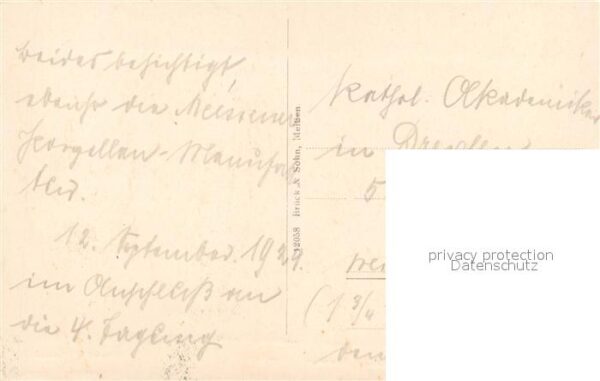 beides besichtigt,
ebenso die Meissener
Porzellan-Manufak
tur.
12. September 1927.
im Anschluß an
die 4. Tagung
12058 Brück & Sohn, Meißen
Kathol. Akademiker
in Dresden
5
(1 3/4
den
privacy protection
Datenschutz